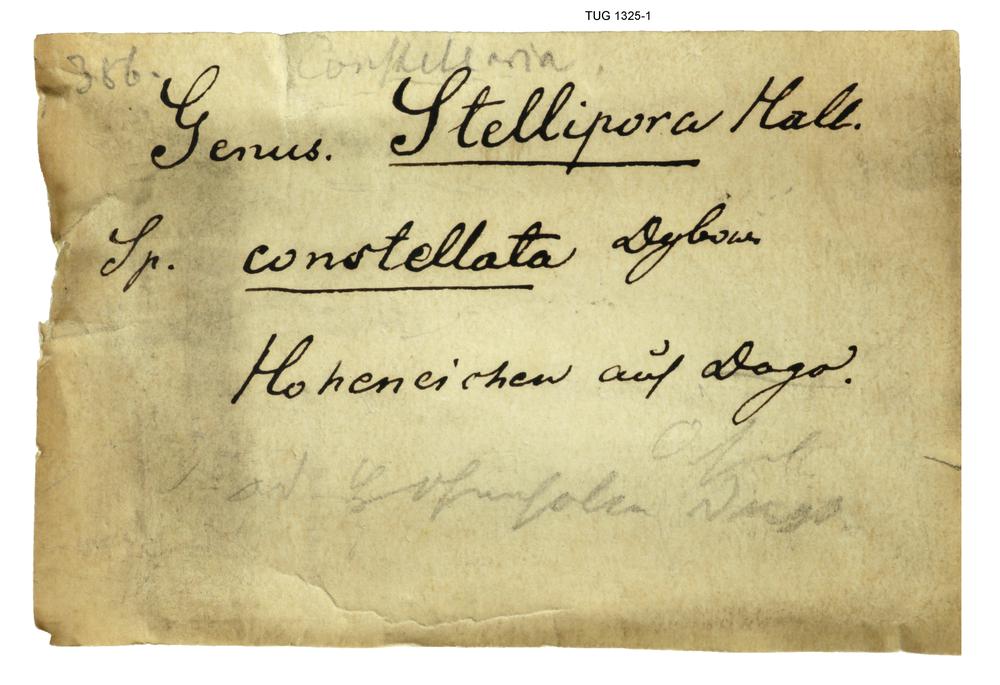 TUG 1325-1
386. Constellaria.
Genus. Stellipora Hall.
Sp. constellata Dybow
Hoheneichen auf Dago.